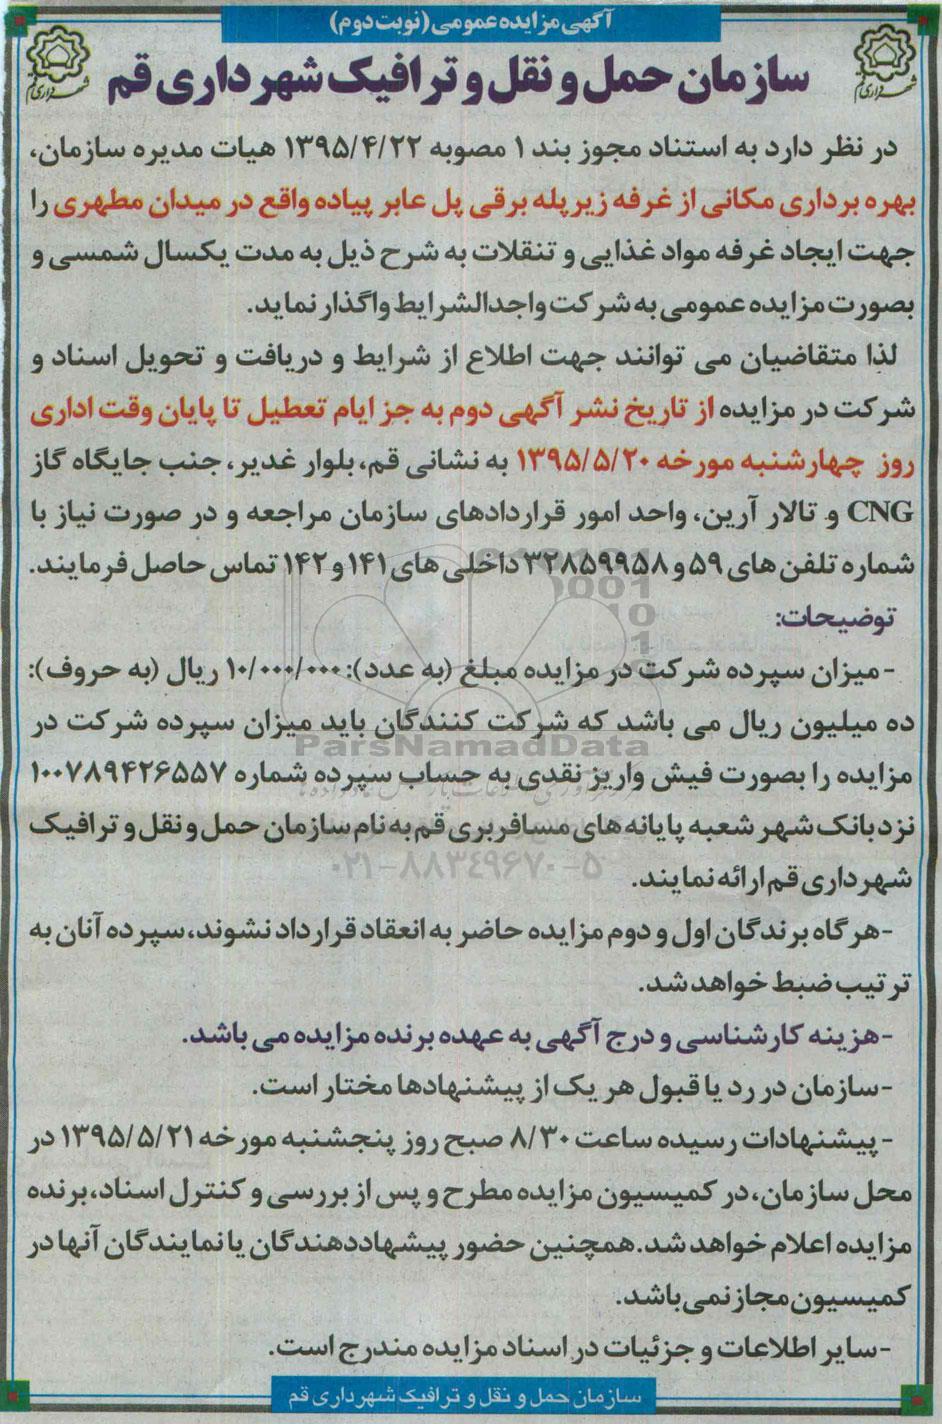 آگهی مزایده عمومی (نوبت دوم)
سازمان حمل و نقل و ترافیک شهرداری قم
در نظر دارد به استناد مجوز بند ۱ مصوبه ۱۳۹۵/۴/۲۲ هیات مدیره سازمان،
بهره برداری مکانی از غرفه زیر پله برقی پل عابر پیاده واقع در میدان مطهری را
جهت ایجاد غرفه مواد غذایی و تنقلات به شرح ذیل به مدت یکسال شمسی و
بصورت مزایده عمومی به شرکت واجدالشرایط واگذار نماید.
لذا متقاضیان می توانند جهت اطلاع از شرایط و دریافت و تحویل اسناد و
شرکت در مزایده از تاریخ نشر آگهی دوم به جز ایام تعطیل تا پایان وقت اداری
روز چهارشنبه مورخه ۱۳۹۵/۵/۲۰ به نشانی قم، بلوار غدیر، جنب جایگاه گاز
CNG و تالار آرین، واحد امور قراردادهای سازمان مراجعه و در صورت نیاز با
شماره تلفن های ۵۹ و ۳۲۸۵۹۹۵۸ داخلی های ۱۴۱ و ۱۴۲ تماس حاصل فرمایند.
توضیحات:
-میزان سپرده شرکت در مزایده مبلغ (به عدد): ۱۰/۰۰۰/۰۰۰ ریال (به حروف):
ده میلیون ریال می باشد که شرکت کنندگان باید میزان سپرده شرکت در
ParsNamadData
مزایده را بصورت فیش واریز نقدی به حساب سپرده شماره ۱۰۰۷۸۹۴۲۶۵۵۷
نزد بانک شهر شعبه پایانه های مسافربری قم به نام سازمان حمل و نقل و ترافیک
۰۲۱-۸۸۳۴۹۶۷۰-۵
شهرداری قم ارائه نمایند.
-هرگاه برندگان اول و دوم مزایده حاضر به انعقاد قرارداد نشوند، سپرده آنان به
ترتیب ضبط خواهد شد.
-هزینه کارشناسی و درج آگهی به عهده برنده مزایده می باشد.
-سازمان در رد یا قبول هر یک از پیشنهادها مختار است.
-پیشنهادات رسیده ساعت ۸/۳۰ صبح روز پنجشنبه مورخه ۱۳۹۵/۵/۲۱ در
محل سازمان، در کمیسیون مزایده مطرح و پس از بررسی و کنترل اسناد، برنده
مزایده اعلام خواهد شد. همچنین حضور پیشهاددهندگان یا نمایندگان آنها در
کمیسیون مجاز نمی باشد.
-سایر اطلاعات و جزئیات در اسناد مزایده مندرج است.
سازمان حمل و نقل و ترافیک شهرداری قم